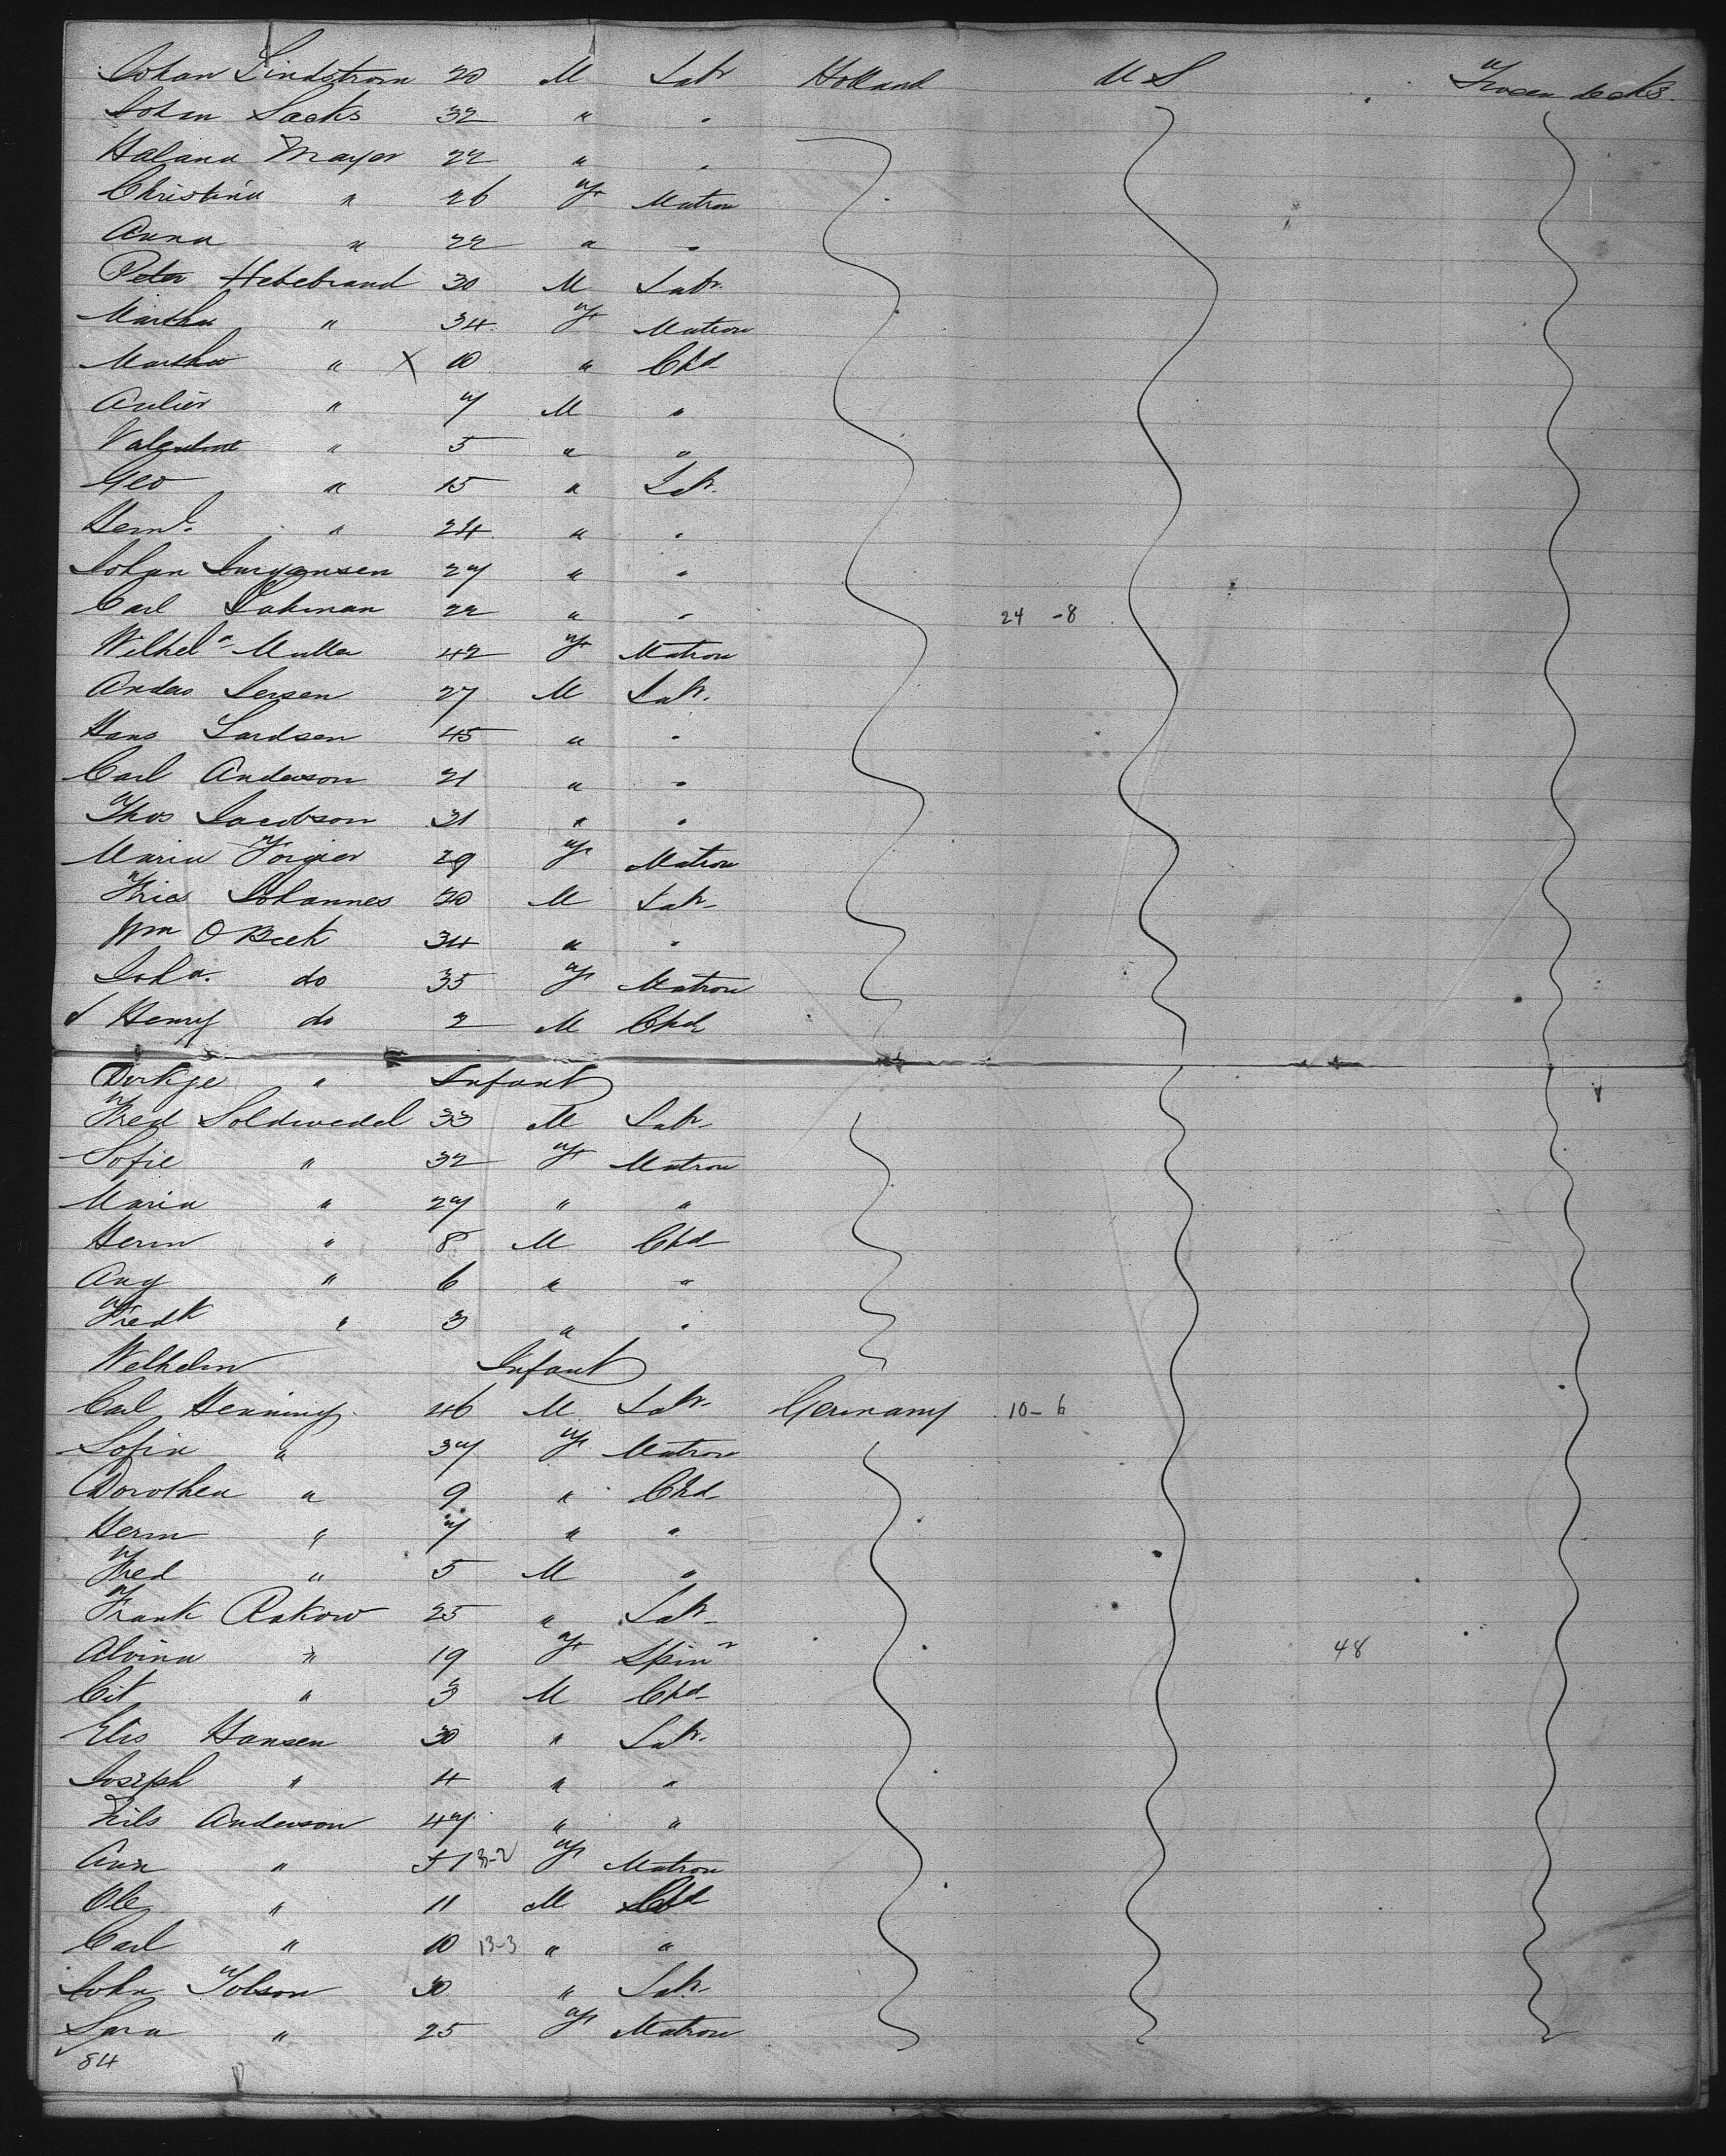 Johan Lindstrom 20 M Labr Holland U S Tween decks
Johan Sacks 32 " "
Halana Mayer 22 " "
Christina " 26 F Matron
Anna " 22 " "
Peter Hebebrand 30 M Labr
Martha " 34 F Matron
Martha " X 10 " Chd
" 7 M "
Valentine " 5 " "
Geo " 15 " Labr
Hernd. " 24 " "
Johan Jurgensen 27 " "
Carl Lahman 22 " " 24 -8
Wilhel a Muller 42 F Matron
Anders Jersen 27 M Labr.
Hans Lardsen 45 " "
Carl Anderson 21 " "
Thos Jacobson 31 " "
Maria Forgier 29 F Matron
Fries Johannes 20 M Labr
Wm O Beek 34 " "
Joha. do 35 F Matron
Henry do 2 M Chd
Dirkje " Infant
Fred Soldwedel 33 M Labr
Sofie " 32 F Matron
Maria " 27 " "
Herm " 8 M Chd
Aug " 6 " "
Fredk " 3 " "
Welhelm Infant
Carl Henning 46 M Labr Germany 10-6
Sofia " 37 F Matron
Dorothea " 9 " Chd
Herm " 7 " "
Fred " 5 M "
Frank Rakow 25 " Labr
Alvina " 19 F Spinr 48
" 3 M Chd
Elis Hansen 30 " Labr
Joseph " 4 " "
Nils Anderson 47 " "
Ann " 51 3-2 F Matron
Ole " 11 M Chd
Carl " 10 13-3 " "
John Tobson 30 " Labr
Sara " 25 F Matron
84